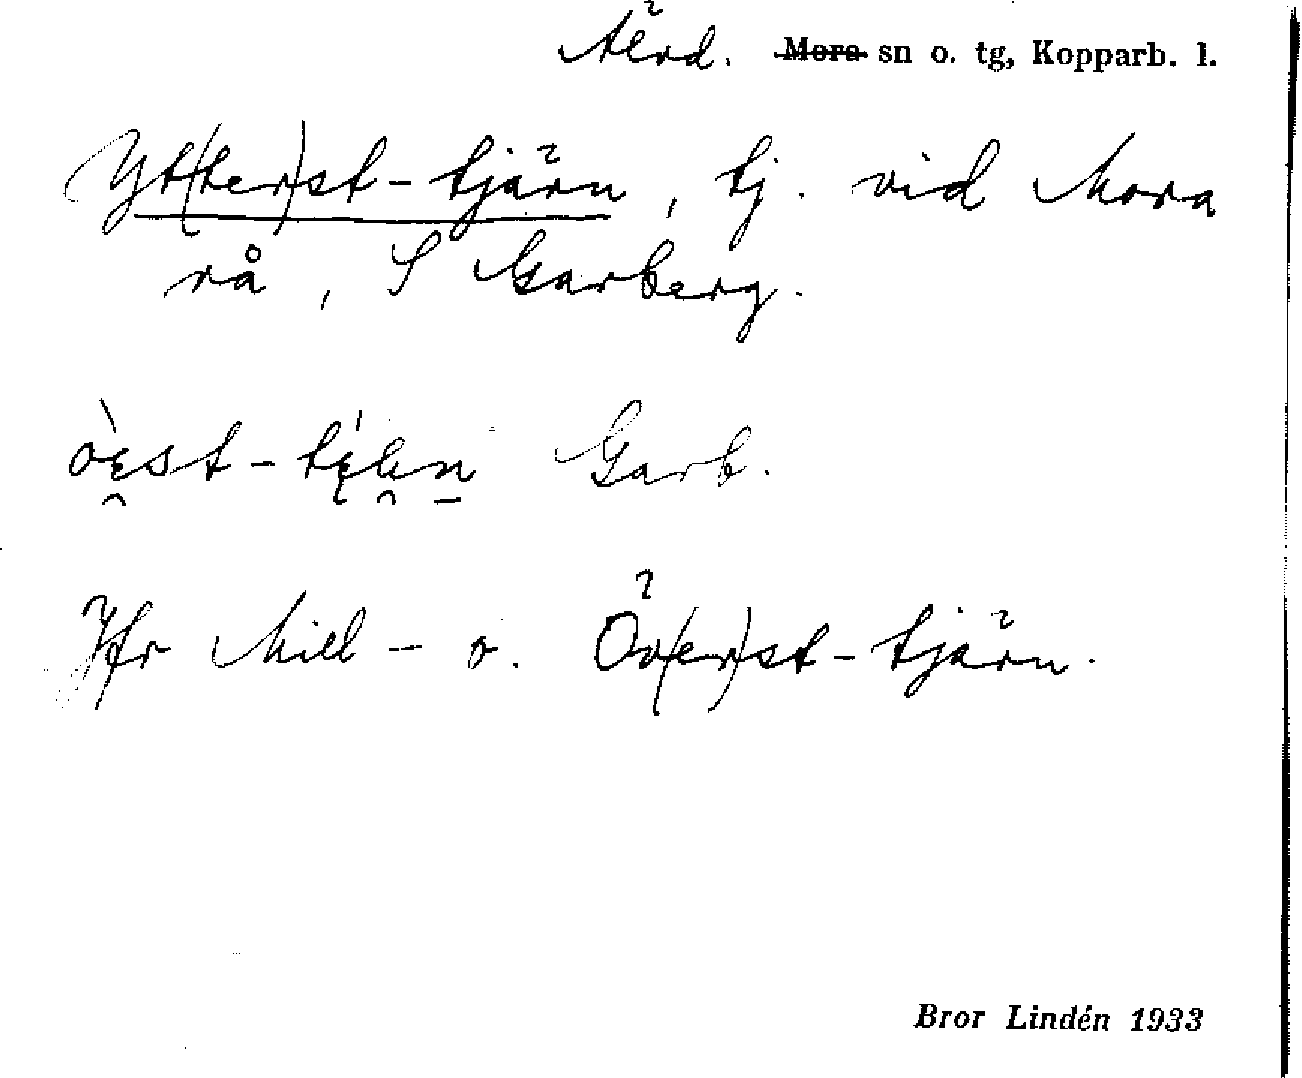 Älvd. Mora sn o. tg, Kopparb. l.
Yt(ter)st-tjärn, tj. vid Mora
rå, S Garberg.
Garb.
Jfr Mill- o. Öv(er)st-tjärn.
Bror Lindén 1933